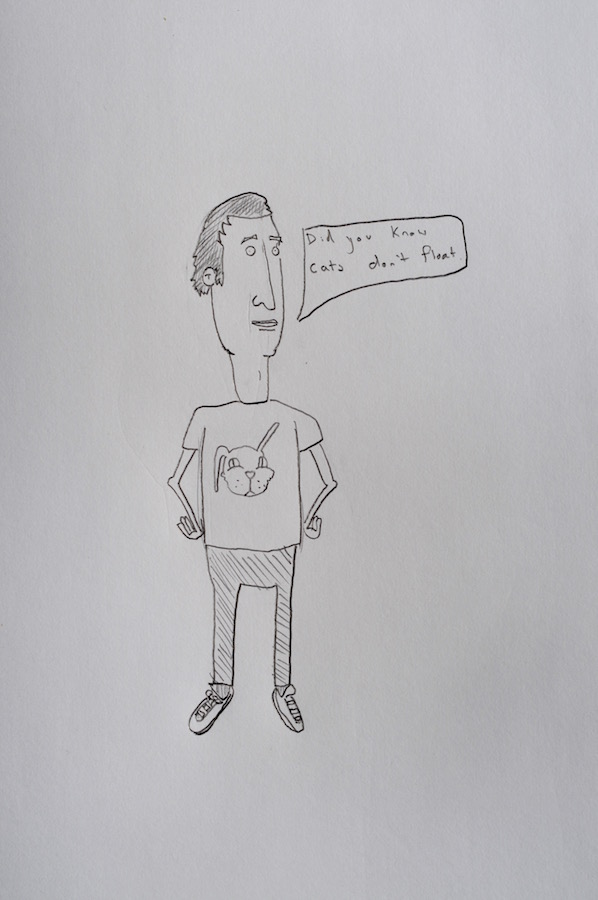 Did you know
cats don't float